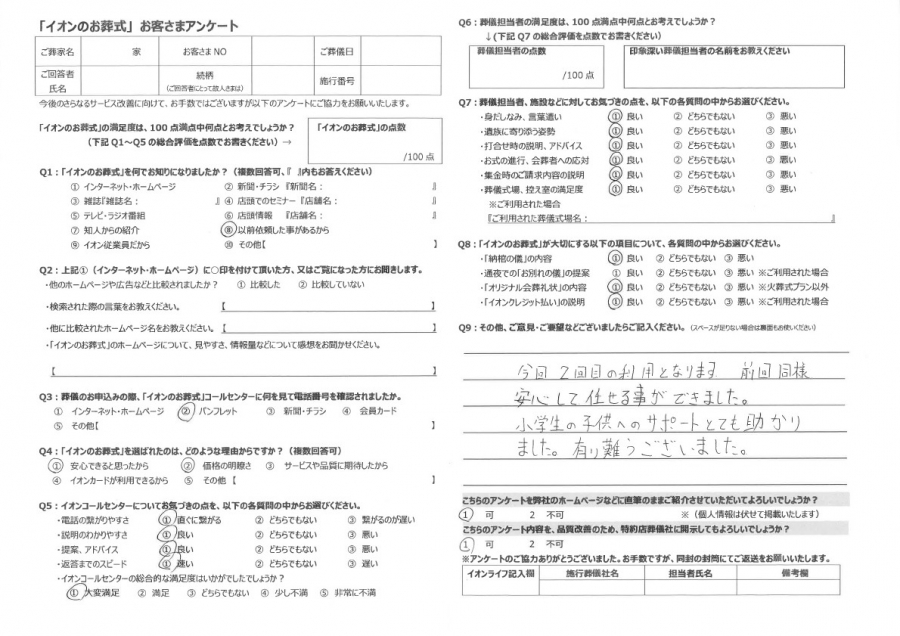 「イオンのお葬式」お客さまアンケート
ご葬家名 家 お客さまNO ご葬儀日
ご回答者氏名 続柄 (ご回答者にとって故人さまは) 施行番号
今後のさらなるサービス改善に向けて、お手数ではございますが以下のアンケートにご協力をお願いいたします。
「イオンのお葬式」の満足度は、100点満点中何点とお考えでしょうか?
(下記Q1~Q5の総合評価を点数でお書きください) →
「イオンのお葬式」の点数
/100点
Q1:「イオンのお葬式」を何でお知りになりましたか? (複数回答可、『 』内もお答えください)
① インターネット・ホームページ ② 新聞・チラシ『新聞名: 』
③ 雑誌『雑誌名: 』 ④ 店頭でのセミナー『店舗名: 』
⑤ テレビ・ラジオ番組 ⑥ 店頭情報 『店舗名: 』
⑦ 知人からの紹介 ⑧ 以前依頼した事があるから
⑨ イオン従業員だから ⑩ その他【 】
Q2:上記①(インターネット・ホームページ)に○印を付けて頂いた方、又はご覧になった方にお聞きします。
・他のホームページや広告などと比較されましたか? ① 比較した ② 比較していない
・検索された際の言葉をお教えください。 【 】
・他に比較されたホームページ名をお教えください。【 】
・「イオンのお葬式」のホームページについて、見やすさ、情報量などについて感想をお聞かせください。
【 】
Q3:葬儀のお申込みの際、「イオンのお葬式」コールセンターに何を見て電話番号を確認されましたか。
① インターネット・ホームページ ② パンフレット ③ 新聞・チラシ ④ 会員カード
⑤ その他【 】
Q4:「イオンのお葬式」を選ばれたのは、どのような理由からですか? (複数回答可)
① 安心できると思ったから ② 価格の明瞭さ ③ サービスや品質に期待したから
④ イオンカードが利用できるから ⑤ その他【 】
Q5:イオンコールセンターについてお気づきの点を、以下の各質問の中からお選びください。
・電話の繋がりやすさ ① 直ぐに繋がる ② どちらでもない ③ 繋がるのが遅い
・説明のわかりやすさ ① 良い ② どちらでもない ③ 悪い
・提案、アドバイス ① 良い ② どちらでもない ③ 悪い
・返答までのスピード ① 速い ② どちらでもない ③ 遅い
・イオンコールセンターの総合的な満足度はいかがでしたでしょうか?
① 大変満足 ② 満足 ③ どちらでもない ④ 少し不満 ⑤ 非常に不満
Q6:葬儀担当者の満足度は、100点満点中何点とお考えでしょうか?
↓(下記Q7の総合評価を点数でお書きください)
葬儀担当者の点数
/100点
印象深い葬儀担当者の名前をお教えください
Q7:葬儀担当者、施設などに対してお気づきの点を、以下の各質問の中からお選びください。
・身だしなみ、言葉遣い ① 良い ② どちらでもない ③ 悪い
・遺族に寄り添う姿勢 ① 良い ② どちらでもない ③ 悪い
・打合せ時の説明、アドバイス ① 良い ② どちらでもない ③ 悪い
・お式の進行、会葬者への応対 ① 良い ② どちらでもない ③ 悪い
・集金時のご請求内容の説明 ① 良い ② どちらでもない ③ 悪い
・葬儀式場、控え室の満足度 ① 良い ② どちらでもない ③ 悪い
※ご利用された場合
『ご利用された葬儀式場名: 』
Q8:「イオンのお葬式」が大切にする以下の項目について、各質問の中からお選びください。
・「納棺の儀」の内容 ① 良い ② どちらでもない ③ 悪い
・通夜での「お別れの儀」の提案 ① 良い ② どちらでもない ③ 悪い ※ご利用された場合
・「オリジナル会葬礼状」の内容 ① 良い ② どちらでもない ③ 悪い ※火葬式プラン以外
・「イオンクレジット払い」の説明 ① 良い ② どちらでもない ③ 悪い ※ご利用された場合
Q9:その他、ご意見・ご要望などございましたらご記入ください。(スペースが足りない場合は裏面もお使いください)
今回2回目の利用となります 前回同様
安心して任せる事ができました。
小学生の子供へのサポートとても助かり
ました。有り難うございました。
こちらのアンケートを弊社のホームページなどに直筆のままご紹介させていただいてよろしいでしょうか?
1 可 2 不可 ※(個人情報は伏せて掲載いたします)
こちらのアンケート内容を、品質改善のため、特約店葬儀社に開示してもよろしいでしょうか?
1 可 2 不可
※アンケートのご協力ありがとうございました。お手数ですが、同封の封筒にてご返送をお願いいたします。
イオンライフ記入欄 施行葬儀社名 担当者氏名 備考欄